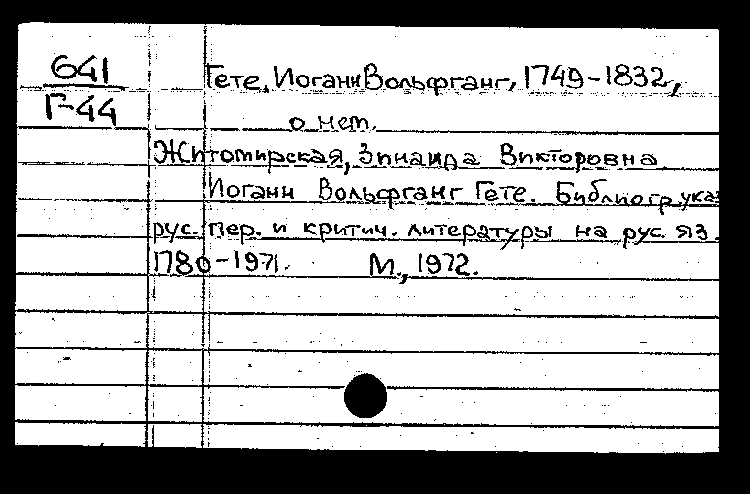 641
Г-44
Гете, Иоганн Вольфганг, 1749-1832,
о нем.
Житомирская, Зинаида Викторовна
Иоганн Вольфганг Гете. Библиогр. указ
рус. пер. и критич. литературы на рус. яз.
1780-1971. М., 1972.